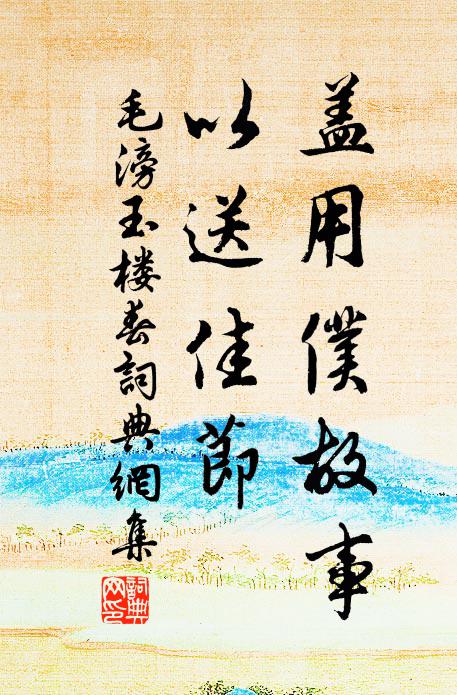 盖用僕故事
以送佳節
毛滂玉楼春詞典網集
詞典网印